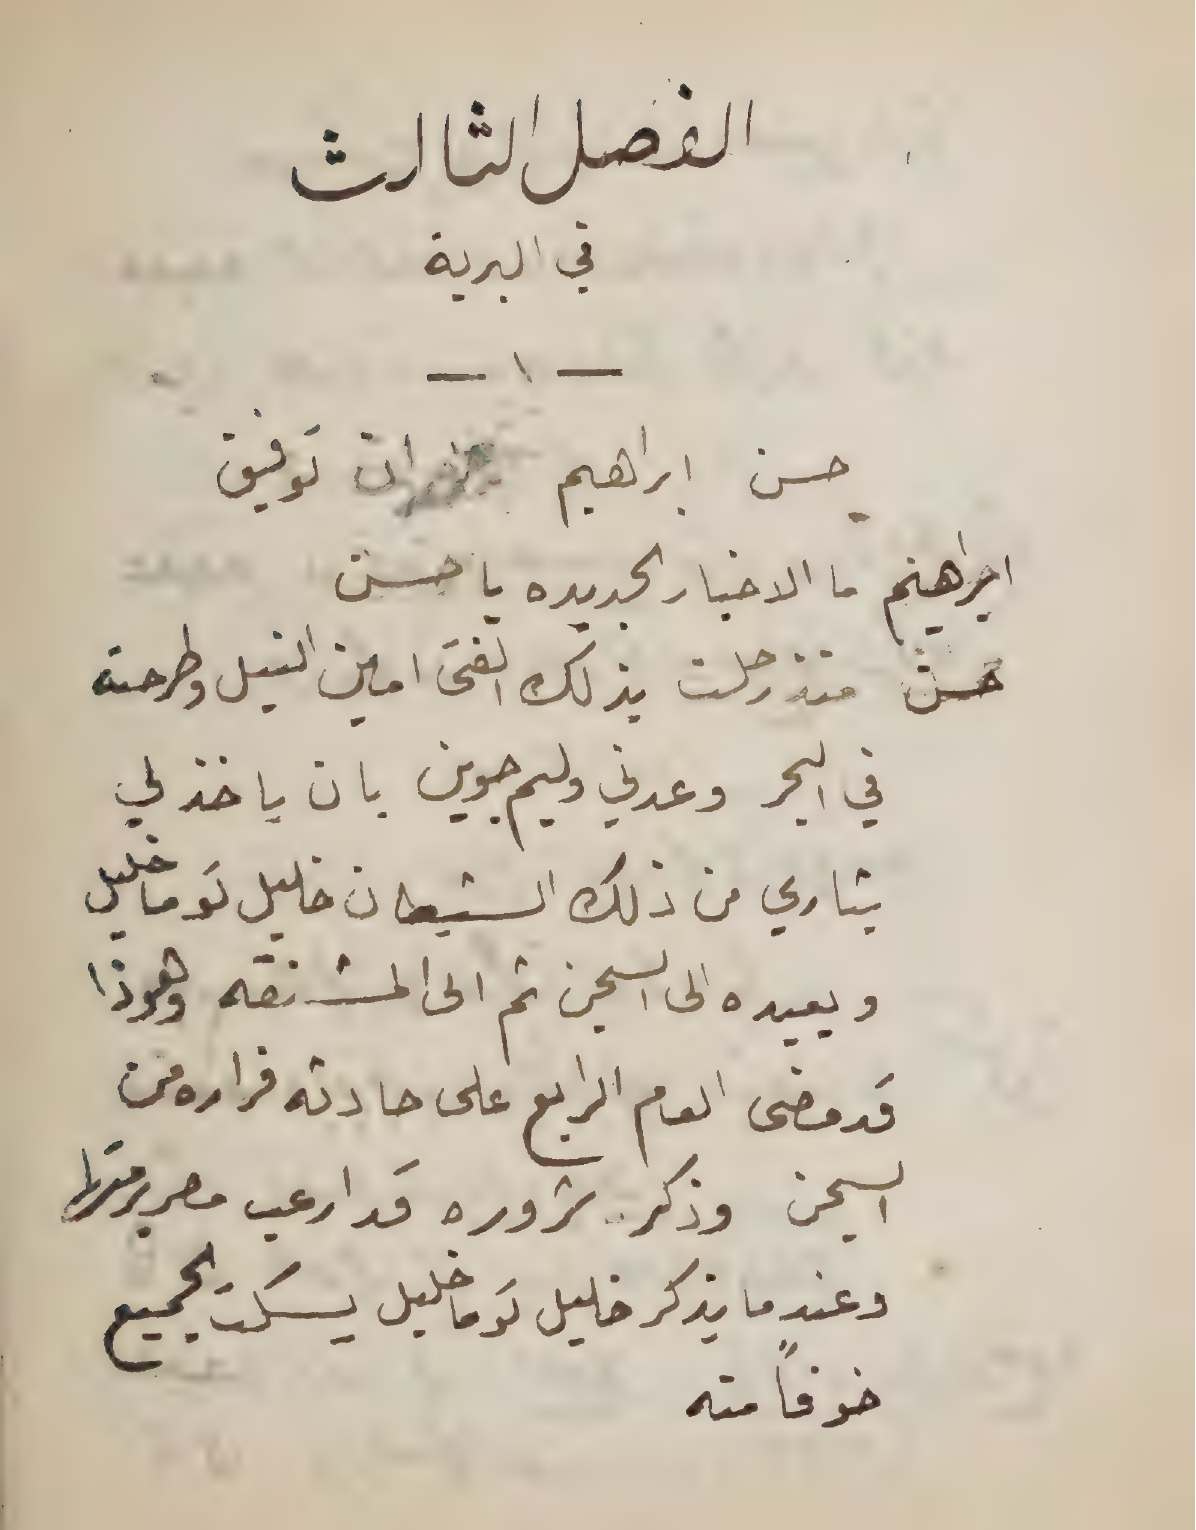 الفصل الثالث
في البرية
— ١ —
حسن ابراهيم توفيق
ابراهيم ما الاخبار الجديده يا حسن
حسن منذ رحلت بذلك الفتى امين النيل وطرحته
في البحر وعدني وليم جوين بان ياخذ لي
بثاري من ذلك الشيطان خليل توماخليل
ويعيده الى السجن ثم الى المشنقه وهوذا
قد مضى العام الرابع على حادثه فراره من
السجن وذكر شروره قد ارعب مصر برمتها
وعندما يذكر خليل توماخليل يسكت الجميع
خوفاً منه